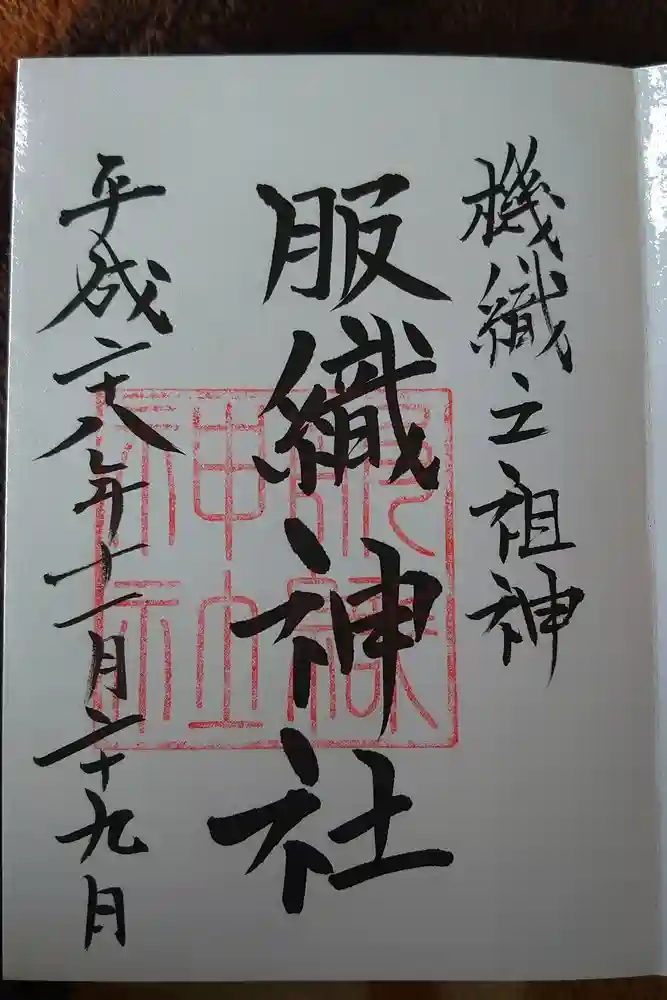 機織之祖神
服織神社
平成二十八年十一月二十九月
服織
神社